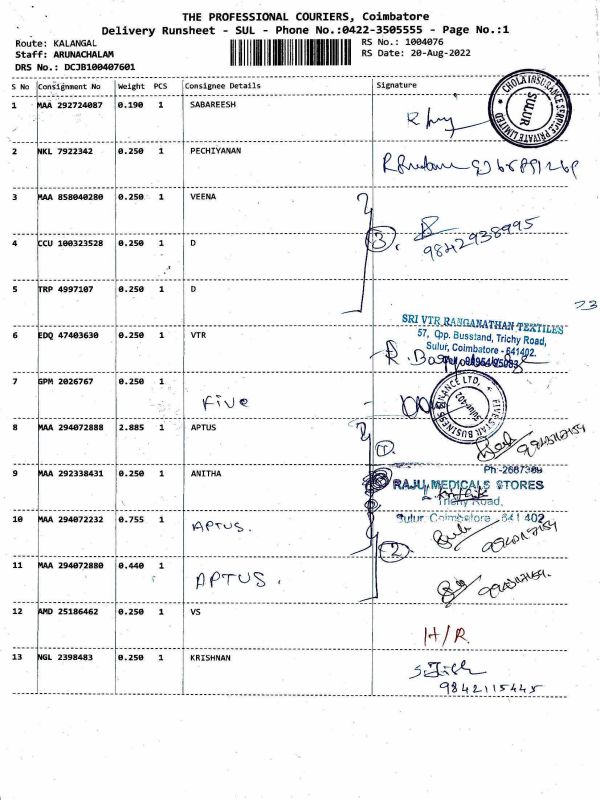 THE PROFESSIONAL COURIERS, Coimbatore
Delivery Runsheet - SUL - Phone No.:0422-3505555 - Page No.:1
Route: KALANGAL
RS No.: 1004076
Staff: ARUNACHALAM
RS Date: 20-Aug-2022
DRS No.: DCJB100407601
S No Consignment No Weight PCS Consignee Details Signature
1 MAA 292724087 0.190 1 SABAREESH
CHOLA INSURANCE SERVICE PRIVATE LIMITED
SULUR
2 NKL 7922342 0.250 1 PECHIYANAN
3 MAA 858040280 0.250 1 VEENA
3
9842938995
4 CCU 100323528 0.250 1 D
5 TRP 4997107 0.250 1 D
23
SRI VTR RANGANATHAN TEXTILES
57, Opp. Busstand, Trichy Road,
Sulur, Coimbatore - 641402.
6 EDQ 47403630 0.250 1 VTR
7 GPM 2026767 0.250 1
Five
FIVE STAR BUSINESS FINANCE LTD.
8 MAA 294072888 2.885 1 APTUS
1
9 MAA 292338431 0.250 1 ANITHA
Ph:-2687309
RAJU MEDICALS STORES
Trichy Road,
Sulur Coimbatore 641 402
10 MAA 294072232 0.755 1 APTUS.
2
11 MAA 294072880 0.440 1 APTUS.
12 AMD 25186462 0.250 1 VS
H/R
13 NGL 2398483 0.250 1 KRISHNAN
9842115445